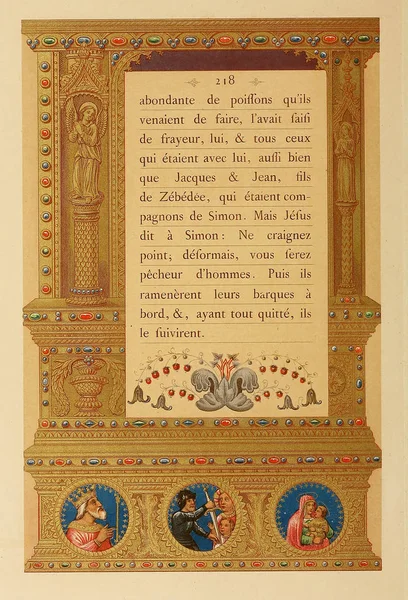 218
abondante de poiſſons qu'ils
venaient de faire, l'avait ſaiſi
de frayeur, lui, & tous ceux
qui étaient avec lui, auſſi bien
que Jacques & Jean, fils
de Zébédée, qui étaient com-
pagnons de Simon. Mais Jéſus
dit à Simon: Ne craignez
point; déſormais, vous ſerez
pêcheur d'hommes. Puis ils
ramenèrent leurs barques à
bord, &, ayant tout quitté, ils
le ſuivirent.